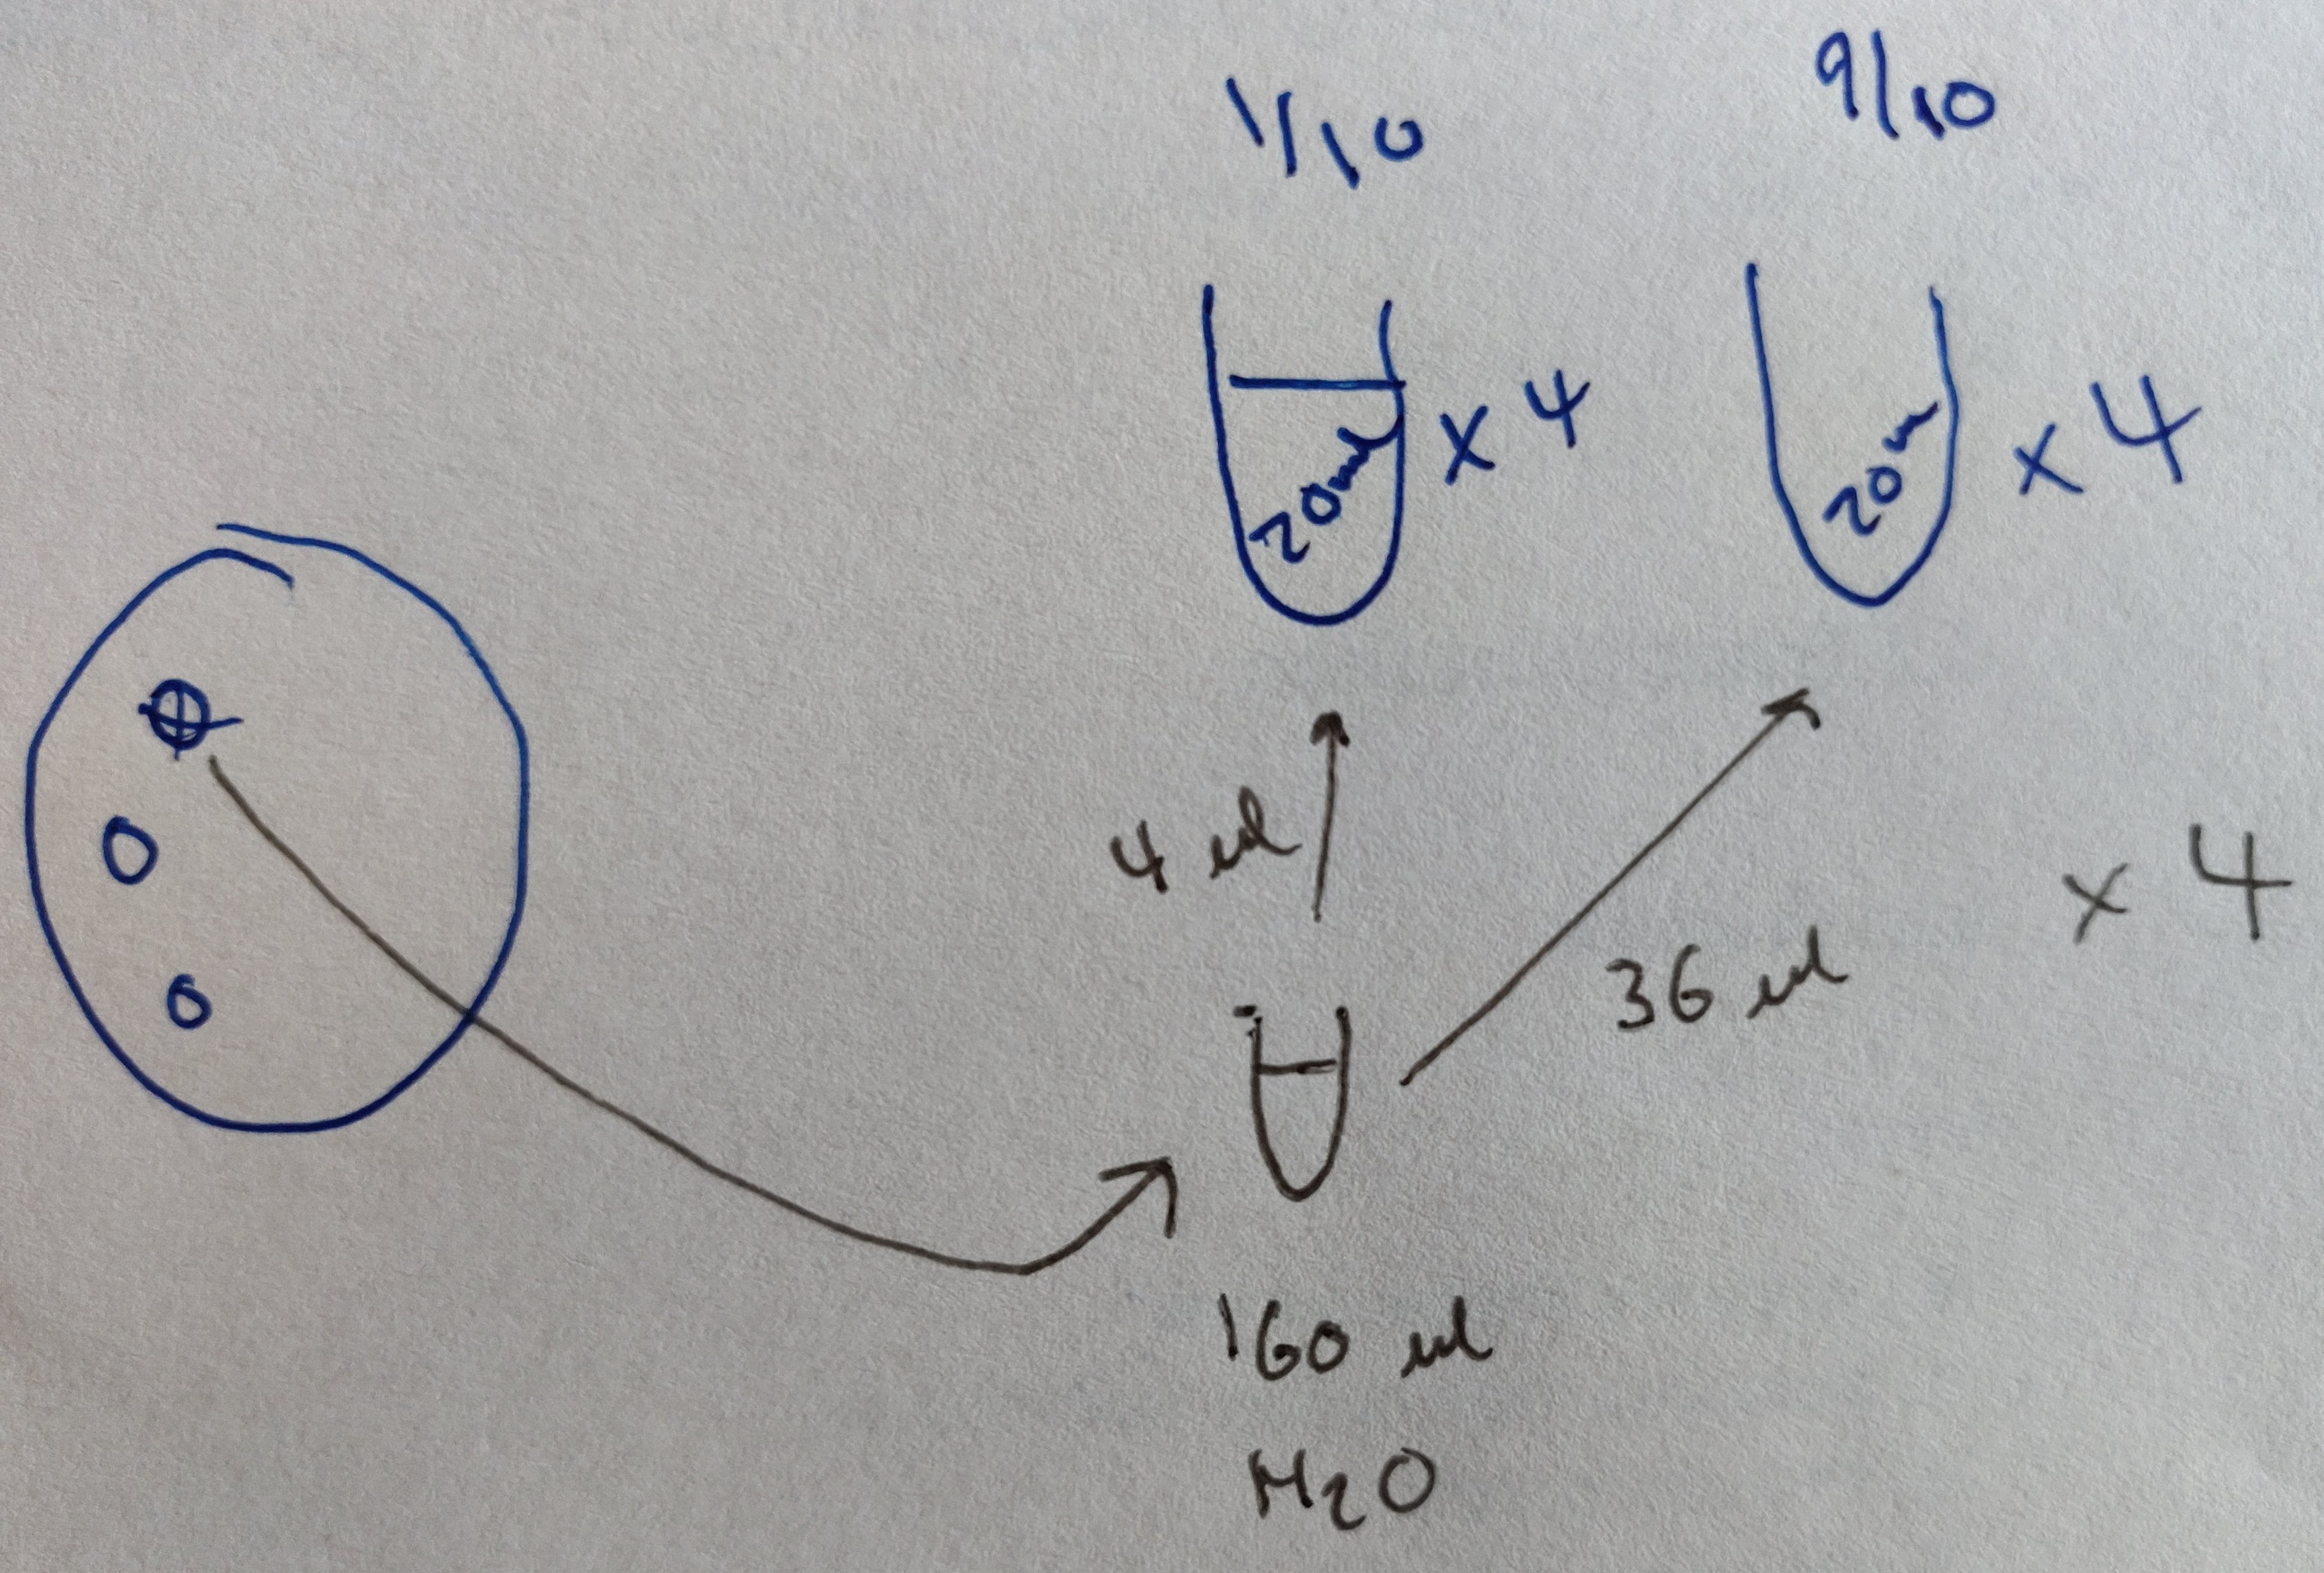 1/10
9/10
20ml
x 4
20m
x 4
4 ul
36 ul
x 4
160 ul
H2O